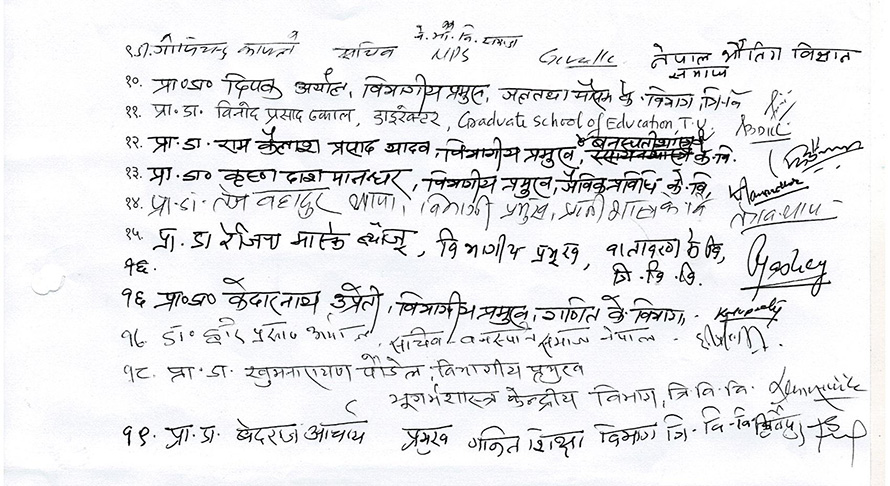 ९ डा. गोपिचन्द्र काफ्ले सचिव ने. भौ. वि. समाज NPS नेपाल भौतिक विज्ञान समाज
१०. प्रा० डा० दिपक अर्याल, विभागीय प्रमुख, जल तथा मौसम के. विभाग, त्रि.वि.
११. प्रा. डा. विनोद प्रसाद ढकाल, डाइरेक्टर, Graduate School of Education, T.U.
१२. प्रा. डा. राम कैलाश प्रसाद यादव, विभागीय प्रमुख, वनस्पतीशास्त्र के. वि.
१३. प्रा. डा० कृष्ण दास मानन्धर, विभागीय प्रमुख, जैविक प्रविधि के. वि. Manandhar
१४. प्रा. डा. तेज बहादुर थापा, विभागी प्रमुख, प्राणी शास्त्र के वि तेजबथापा
१५. प्रा. डा रेजिना मास्के ब्याञ्जू, विभागीय प्रमुख, वातावरण के वि,
१६. त्रि. वि. वि.
१६ प्रा० डा० केदारनाथ उप्रेती, विभागीय प्रमुख, गणित के. विभाग,
१७. डा. प्रसाद सचिव वनस्पति समाज नेपाल
१८. प्रा. डा. खुमनारायण पौडेल, विभागीय प्रमुख
भूगर्भशास्त्र केन्द्रीय विभाग, त्रि. वि. वि.
१९. प्रा. प्र. बेदराज आचार्य प्रमुख गणित शिक्षा विभाग त्रि. वि. वि.